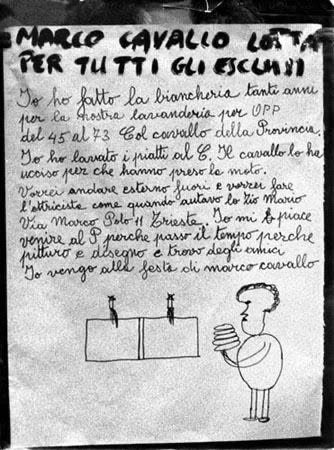 MARCO CAVALLO LOTTA
PER TUTTI GLI ESCLUSI
Io ho fatto la biancheria tanti anni
per la nostra lavanderia per OPP
del 45 al 73 Col cavallo della Provincia.
Io ho lavato i piatti al C. Il cavallo lo ha
ucciso per che hanno preso la moto.
Vorrei andare esterno fuori e vorrei fare
l'attricista come quando autavo lo Zio Mario
Via Marco Polo 11 Trieste. Io mi piace
venire al P perche passo il tempo perche
pitturo e disegno e trovo degli amici
Io vengo alla festa di marco cavallo